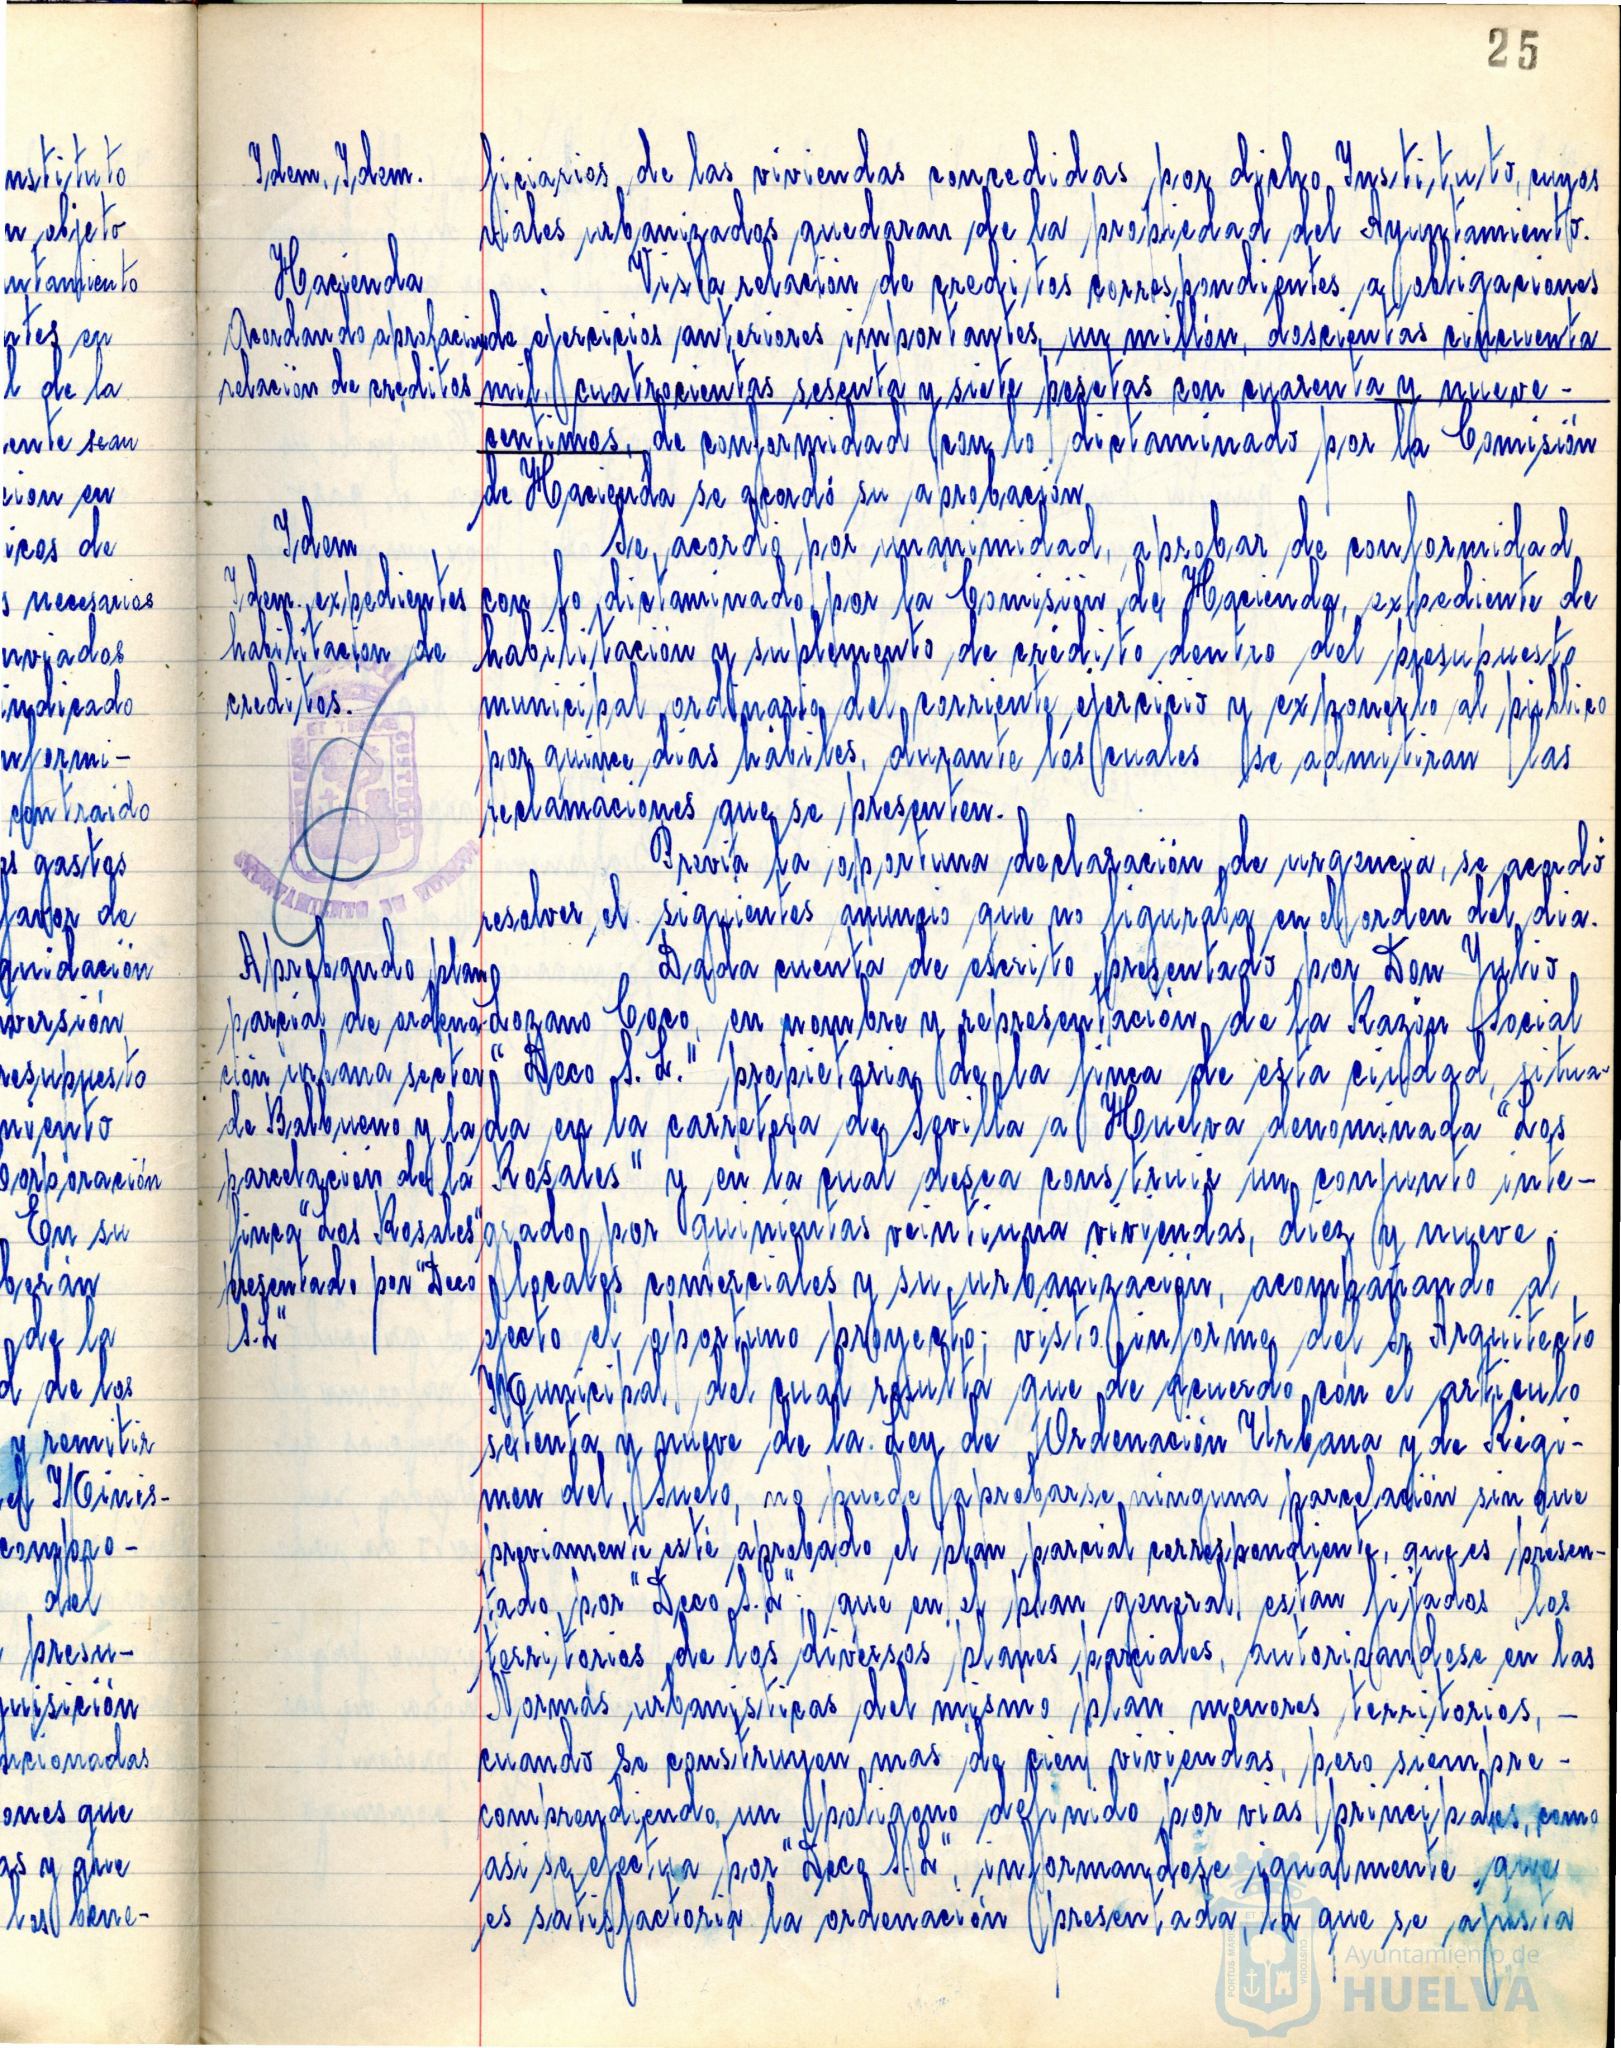 25
nstituto
n objeto
ntamiento
ntes en
l de la
ente sean
cion en
icos de
s necesarios
nviados
indicado
nformi-
contraido
os gastos
favor de
quidación
versión
resupuesto
miento
orporación
En su
berán
de la
d de los
y remitir
el Minis-
compro-
del
presu-
quisición
ncionadas
ones que
as y que
los bene-
Idem. Idem.
Hacienda
Acordando aprobacion
relación de creditos
Idem
Idem. expedientes
habilitación de
creditos.
Aprobando plan
parcial de ordena-
ción urbana sector
de Balbueno y la
parcelación de la
finca "Los Rosales"
presentado por "Deco
S.L"
ficiarios de las viviendas concedidas por dicho Instituto, cuyos
viales urbanizados quedaran de la propiedad del Ayuntamiento.
Vista relación de creditos correspondientes a obligaciones
de ejercicios anteriores importantes, un millón, doscientas cincuenta
mil, cuatrocientas sesenta y siete pesetas con cuarenta y nueve -
centimos, de conformidad con lo dictaminado por la Comisión
de Hacienda se acordó su aprobación
Se acordó por unanimidad, aprobar de conformidad
con lo dictaminado por la Comisión de Hacienda, expediente de
habilitación y suplemento de crédito dentro del presupuesto
municipal ordinario del corriente ejercicio y exponerlo al público
por quince dias hábiles, durante los cuales se admitiran las
reclamaciones que se presenten.
Previa la oportuna declaración de urgencia, se acordó
resolver el siguientes anuncio que no figuraba en el orden del dia.
Dada cuenta de escrito presentado por Don Julio
Lozano Coco, en nombre y representación de la Razón Social
"Deco S.L." propietaria de la finca de esta ciudad, situa-
da en la carretera de Sevilla a Huelva denominada "Los
Rosales" y en la cual desea construir un conjunto inte-
grado por quinientas veintiuna viviendas, diez y nueve
locales comerciales y su urbanización, acompañando al
efecto el oportuno proyecto; visto informe del Sr Arquitecto
Municipal del cual resulta que de acuerdo con el articulo
setenta y nueve de la Ley de Ordenación Urbana y de Régi-
men del Suelo, no puede aprobarse ninguna parcelación sin que
previamente esté aprobado el plan parcial correspondiente, que es presen-
tado por "Deco S.L"; que en el plan general estan fijados los
territorios de los diversos planes parciales, autorizandose en las
Normas urbanisticas del mismo plan menores territorios, -
cuando se construyen mas de cien viviendas, pero siempre -
comprendiendo un poligono definido por vias principales, como
asi se efectua por "Deco S.L", informandose igualmente que
es satisfactoria la ordenación presentada, la que se ajusta
Ayuntamiento de
HUELVA